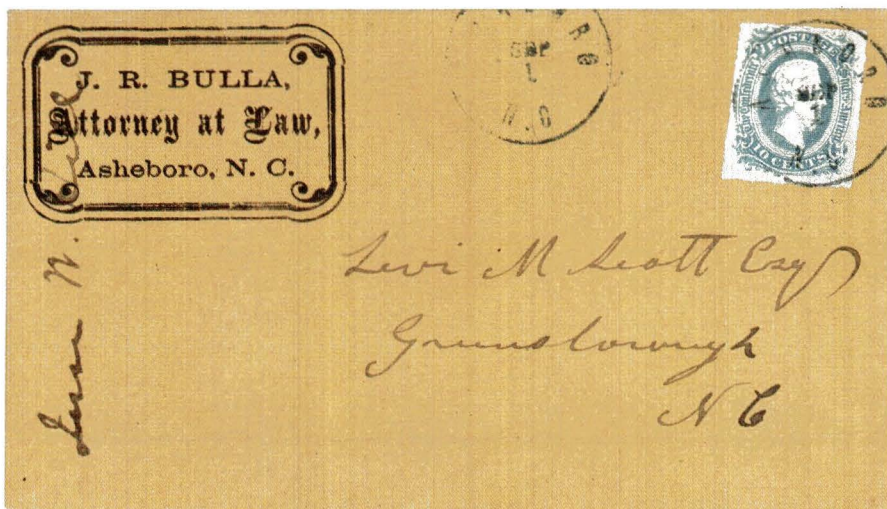 J. R. BULLA,
Attorney at Law,
Asheboro, N. C.
SEP
1
N.C
POSTAGE
SEP
1
10 CENTS
Levi M Scott Esq
Greensborough
N C
W.